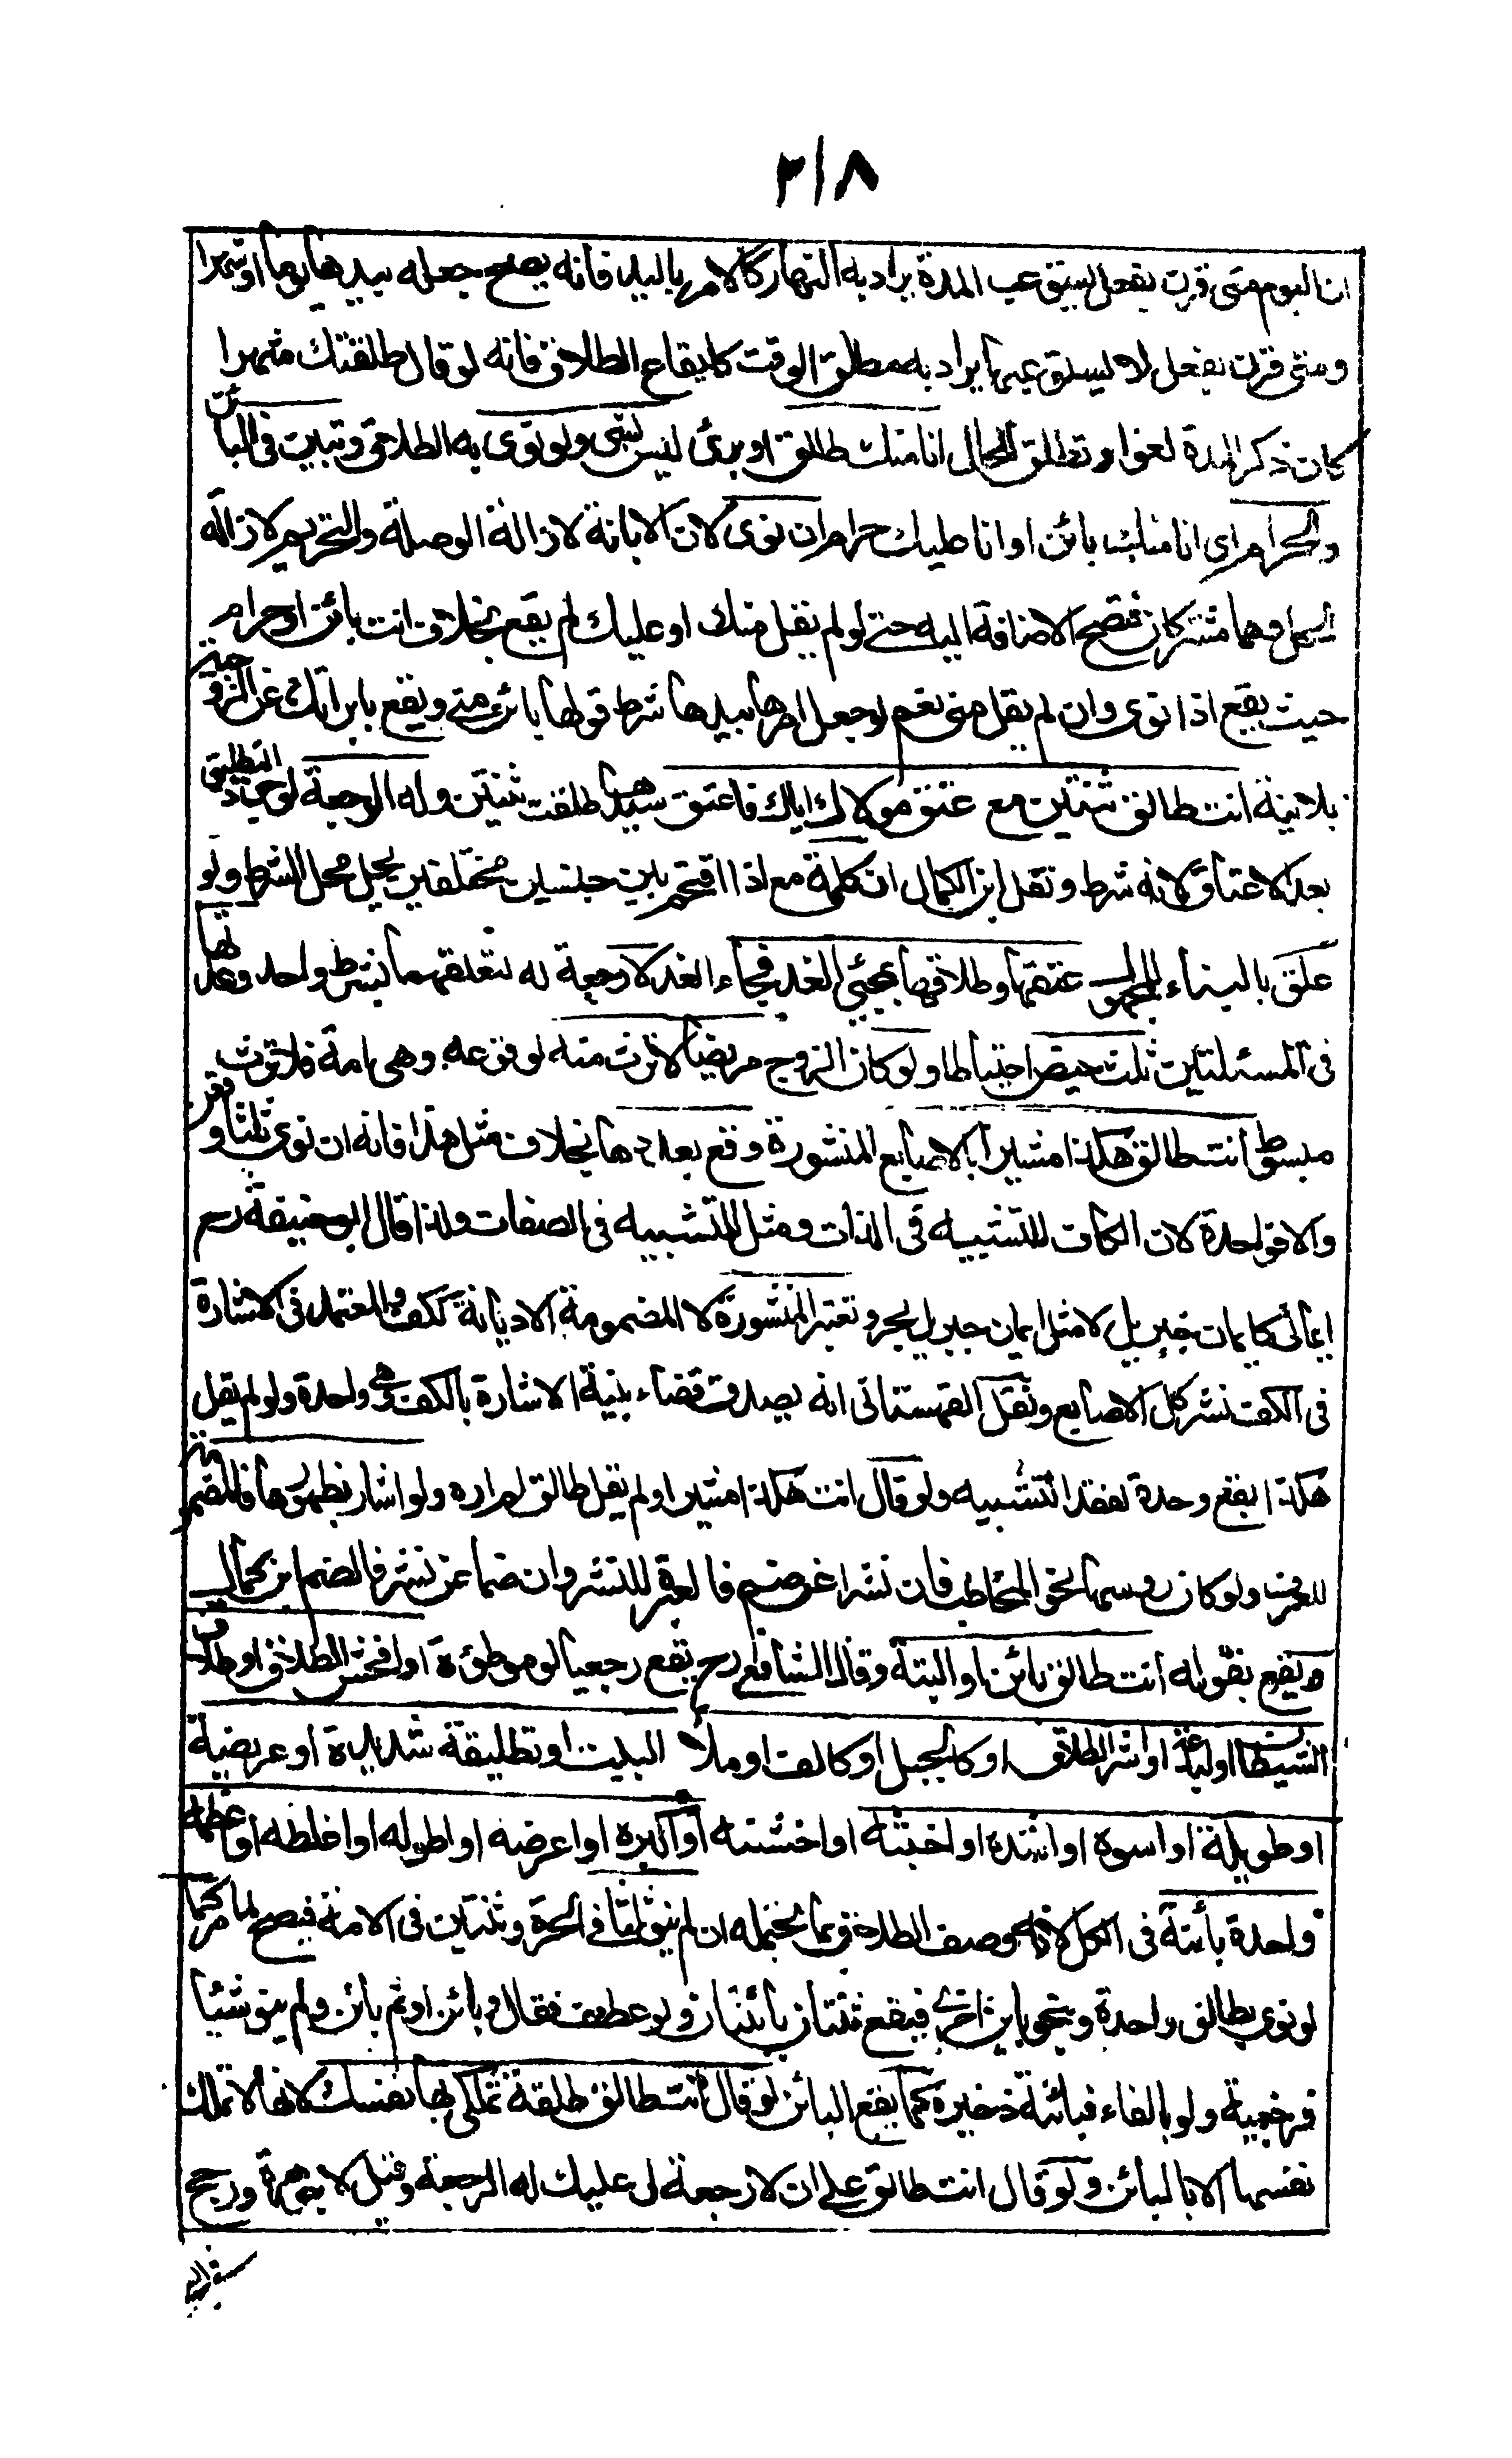 ٣١٨
ان اليوم متى قرن بفعل يستوعب المدة يراد به النهار كالامر باليد فانه يصح جعله بيدها يوما او شهرا
ومتى قرن بفعل لا يستوعبها يراد به مطلق الوقت كايقاع الطلاق فانه لو قال طلقتك شهرا
كان ذكر المدة لغوا وتطلق للحال انا منك طالق او برئ ليس بشئ ولو نوى به الطلاق وتبين في البائن
والحرام اى انا منك بائن او انا عليك حرام ان نوى لان الابانة لازالة الوصلة والتحريم لازالة
الحل وهما مشتركان فتصح الاضافة اليه حتى لو لم يقل منك او عليك لم يقع بخلاف انت بائن او حرام
حيث يقع اذا نوى وان لم يقل منى نعم لو جعل امرها بيدها شرط قولها بائن منى ويقع بابرأتك عن الزوجية
بلا نية انت طالق ثنتين مع عتق مولاك اياك فاعتق سيدها طلقت ثنتين وله الرجعة لوجود التطليق
بعد الاعتاق لانه شرط ونقل ابن الكمال ان كلمة مع اذا اقتحم بين جنسين مختلفين يحل محل الشرط ولو
علق بالبناء للمجهول عتقها وطلاقها بمجئ الغد فجاء الغد لا رجعة له لتعلقهما بشرط واحد وعدتها
في المسئلتين ثلث حيض احتياطا ولو كان الزوج مريضا لا ترث منه لوقوعه وهى امة فلا ترث
مبسوط انت طالق هكذا مشيرا بالاصابع المنشورة وقع بعددها بخلاف مثل هذا فانه ان نوى ثلثا وقعن
والا فواحدة لان الكاف للتشبيه في الذات ومثل للتشبيه في الصفات ولذا قال ابو حنيفة رح
ايمانى كايمان جبريل لا مثل ايمان جبريل بحر وتعتبر المنشورة لا المضمومة الا ديانة ككف والمعتمد في الاشارة
في الكف نشر كل الاصابع ونقل القهستانى انه يصدق قضاء بنية الاشارة بالكف وهى واحدة ولو لم يقل
هكذا يقع واحدة لفقد التشبيه ولو قال انت هكذا مشيرا ولم يقل طالق لم اره ولو اشار بظهورها فالمضمومة
للعرف ولو كان روسها نحو المخاطب فان نشرا عن ضم فالعبرة للنشر وان ضما عن نشر فالضم ابن كمال
ويقع بقوله انت طالق بائن او البتة وقال الشافعى رح يقع رجعيا لو موطؤة او افحش الطلاق او طلاق
الشيطان او البدعة او اشر الطلاق او كالجبل او كالف او ملأ البيت او تطليقة شديدة او عريضة
او طويلة او اسوه او اشده او اخبثه او اخشنه او اكبره او اعرضه او اطوله او اغلظه او اعظمه
واحدة بائنة في الكل لانه وصف الطلاق بما يحتمله ان لم ينو ثلثا في الحرة وثنتين في الامة فيصح لما مر كما
لو نوى بطالق واحدة وبنحو بائن اخرى فيقع ثنتان بائنتان ولو عطف فقال وبائن او ثم بائن ولم ينو شيئا
فرجعية ولو بالفاء فبائنة ذخيرة كما يقع البائن لو قال انت طالق طلقة تملكى بها نفسك لانها لا تملك
نفسها الا بالبائن ولو قال انت طالق على ان لا رجعة لى عليك له الرجعة وقيل لا جوهرة ورجح